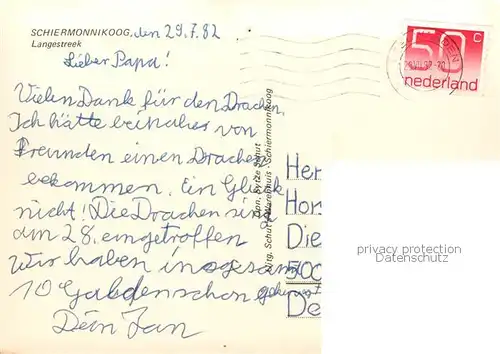 SCHIERMONNIKOOG, den 29.7.82
Langestreek
Lieber Papa!
Vielen Dank für den Drachen.
Ich hätte beinahes von
Freunden einen Drachen
bekommen. Ein Glück
nicht! Die Drachen sind
am 28. eingetroffen
Wir haben insgesamt
10 Guldenschon
Dein Jan
50 c
nederland
Uitg. Schut's Warenhuis - Schiermonnikoog
Fytze Schut
Her
Hor
Die
500
De
privacy protection
Datenschutz